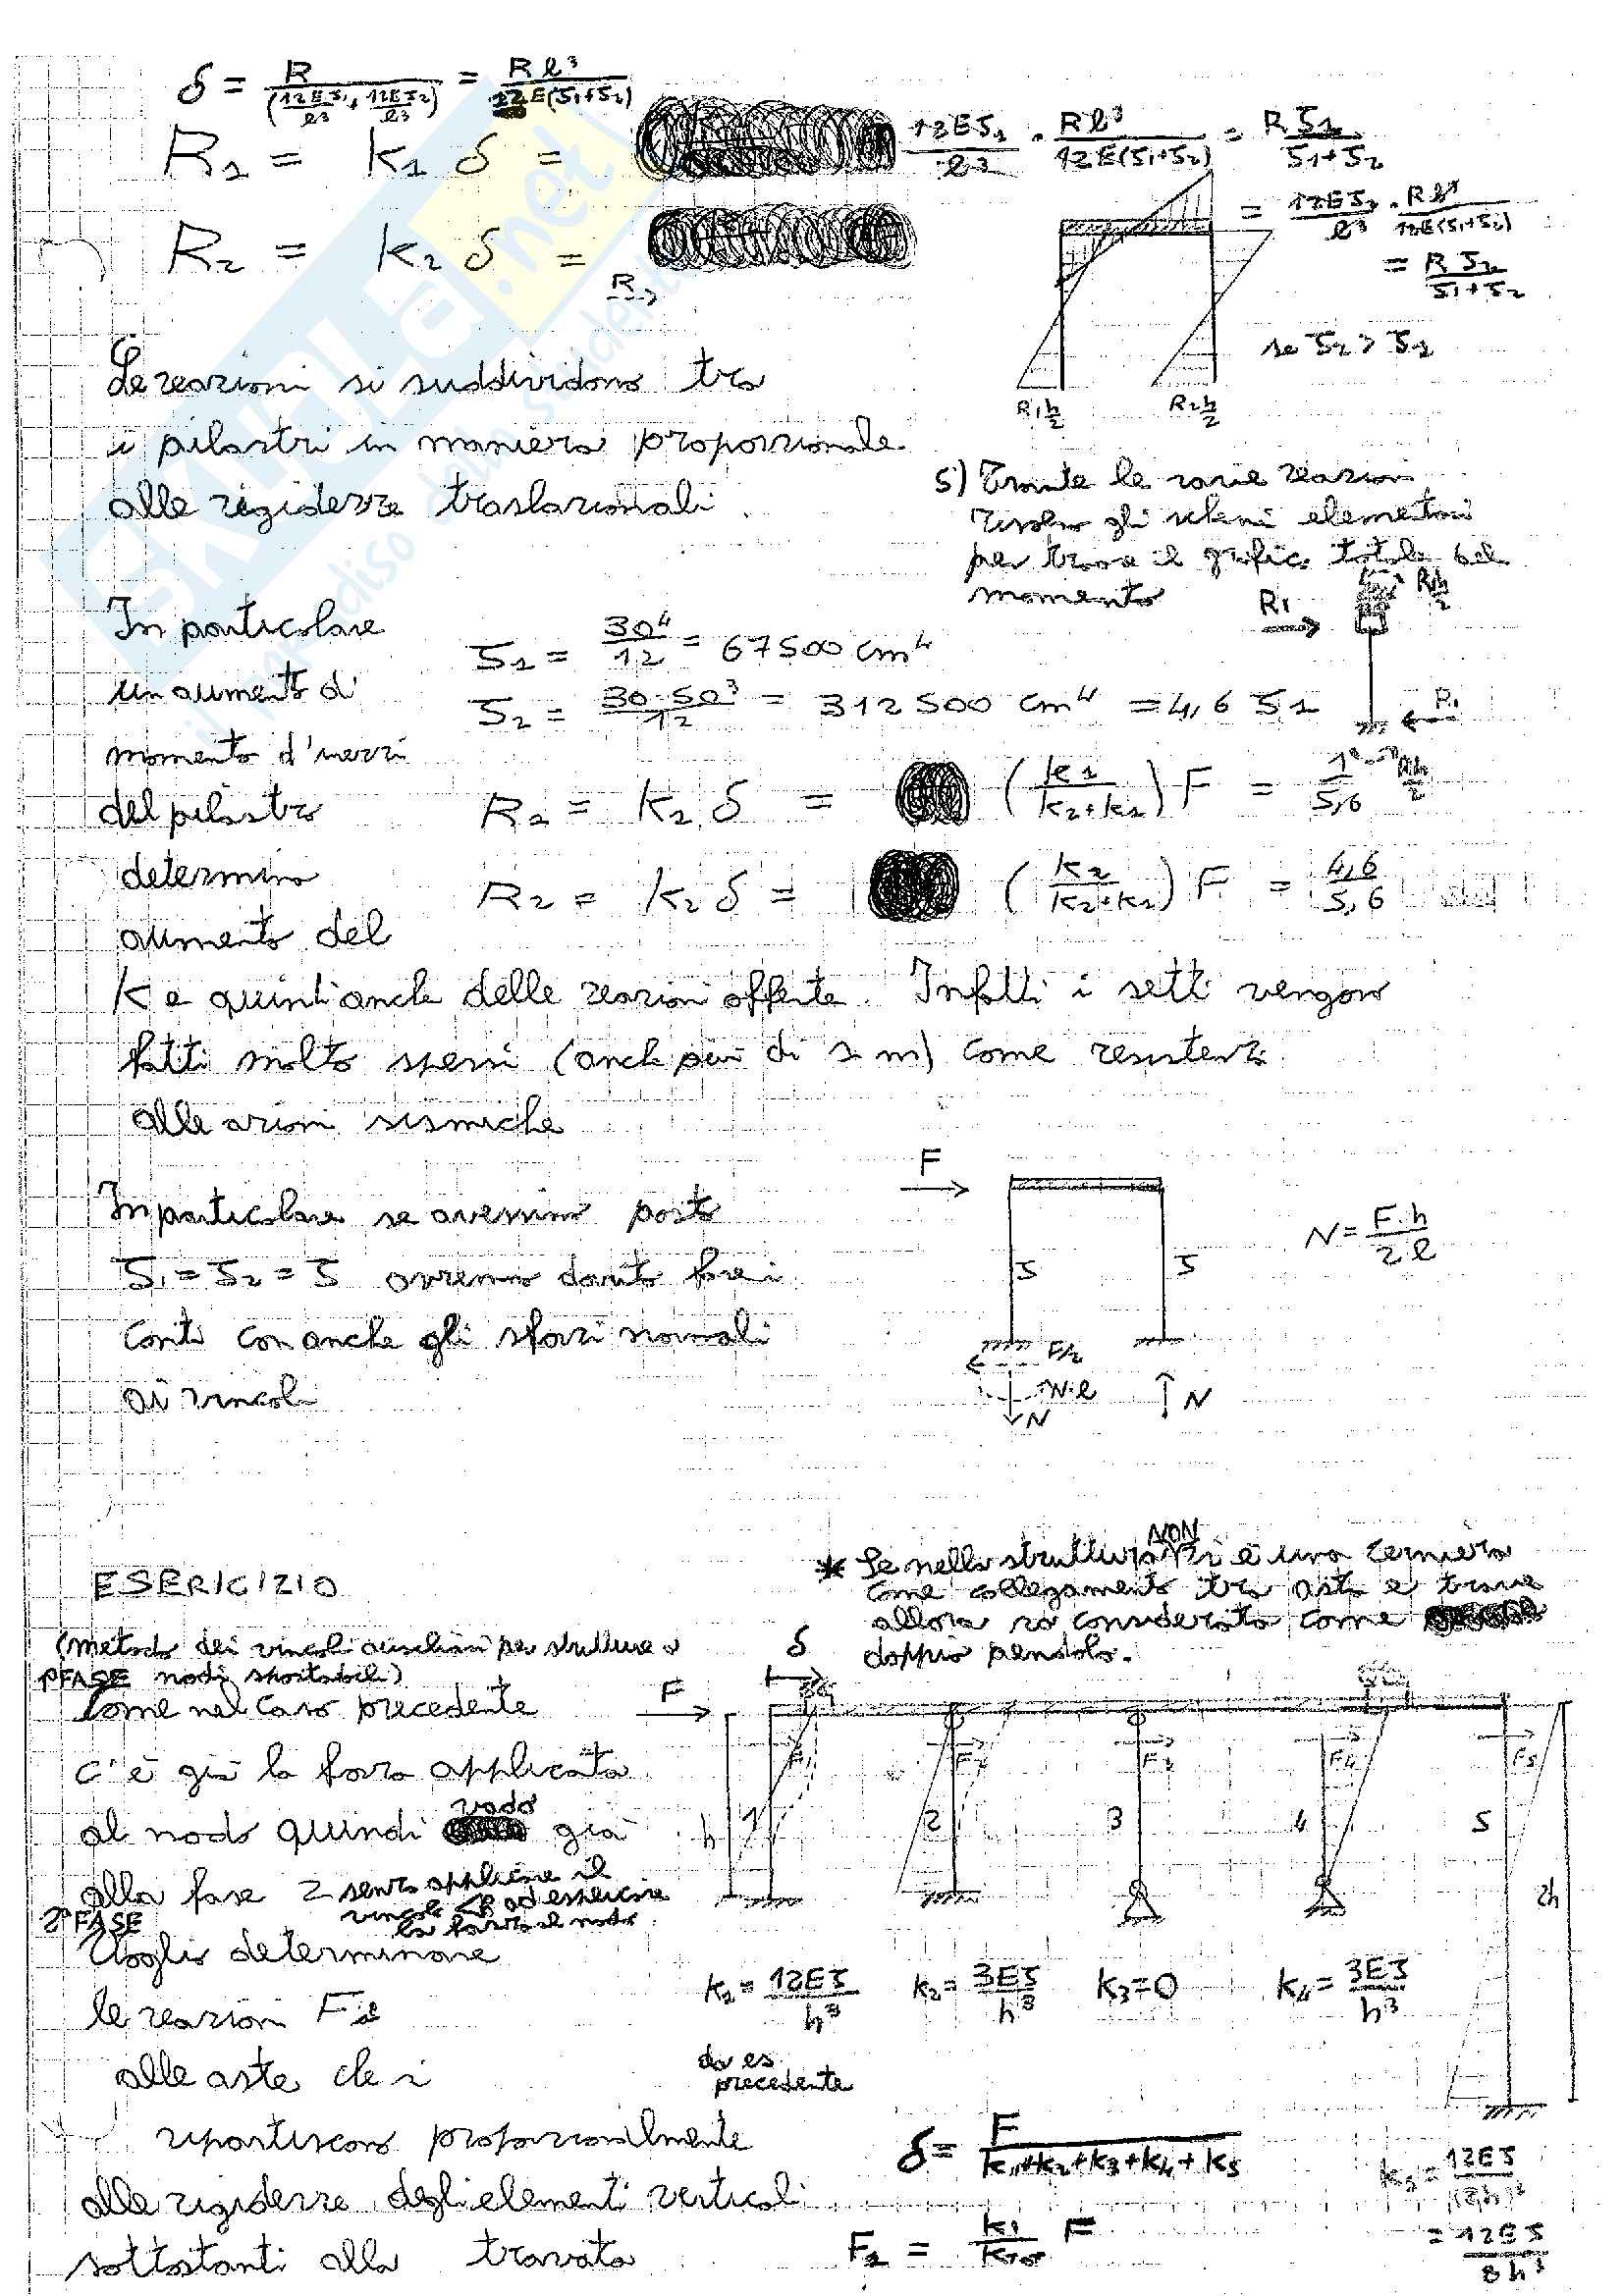 δ = R / (12EJ1/l³ + 12EJ2/l³) = R l³ / 12E(J1+J2)
R1 = K1 δ = 12EJ1/l³ · Rl³/12E(J1+J2) = R J1/J1+J2
R2 = K2 δ = 12EJ2/l³ · Rl³/12E(J1+J2)
= R J2/J1+J2
R
Le reazioni si suddividono tra
i pilastri in maniera proporzionale
alle rigidezze traslazionali.
se J2 > J1
R1 h/2
R2 h/2
5) Trovate le varie reazioni
risolvo gli schemi elementari
per trovare il grafico totale del
momento
R1
R1 h/2
R1
R1 h/2
In particolare
un aumento di
momento d'inerzi
del pilastro
determina
aumento del
J1 = 30⁴/12 = 67500 cm⁴
J2 = 30·50³/12 = 312500 cm⁴ = 4,6 J1
R1 = K1 δ = (K1/K2+K1) F = 1/5,6
R2 = K2 δ = (K2/K2+K1) F = 4,6/5,6
K e quindi anche delle reazioni offerte. Infatti i setti vengon
fatti molto spessi (anche più di 1 m) come resistenza
alle azioni sismiche
In particolare se avessimo posto
J1 = J2 = J avremo dovuto fare i
conti con anche gli sforzi normali
ai vincoli
F
J
J
N = F·h/2l
F/2
N·l
N
N
ESERICIZIO
(metodo dei vincoli ausiliari per strutture a
nodi spostabili)
1ª FASE
Come nel caso precedente
c'è già la forza applicata
al nodo quindi vado già
alla fase 2 senza applicare il
vincolo ed esplicare
la forza al nodo
2ª FASE
Voglio determinare
le reazioni Fi
alle aste che si
ripartiscono proporzionalmente
alle rigidezze degli elementi verticali
sottostanti alla travata
* Se nella struttura NON vi è una cerniera
come collegamento tra asta e trave
allora va considerato come
doppio pendolo.
F
δ
F1
F2
F3
F4
F5
h
1
2
3
4
5
2h
K1 = 12EJ/h³
K2 = 3EJ/h³
K3 = 0
K4 = 3EJ/h³
da es.
precedente
δ = F / K1+K2+K3+K4+K5
K5 = 12EJ/(2h)³
= 12EJ/8h³
F1 = K1/Ktot F